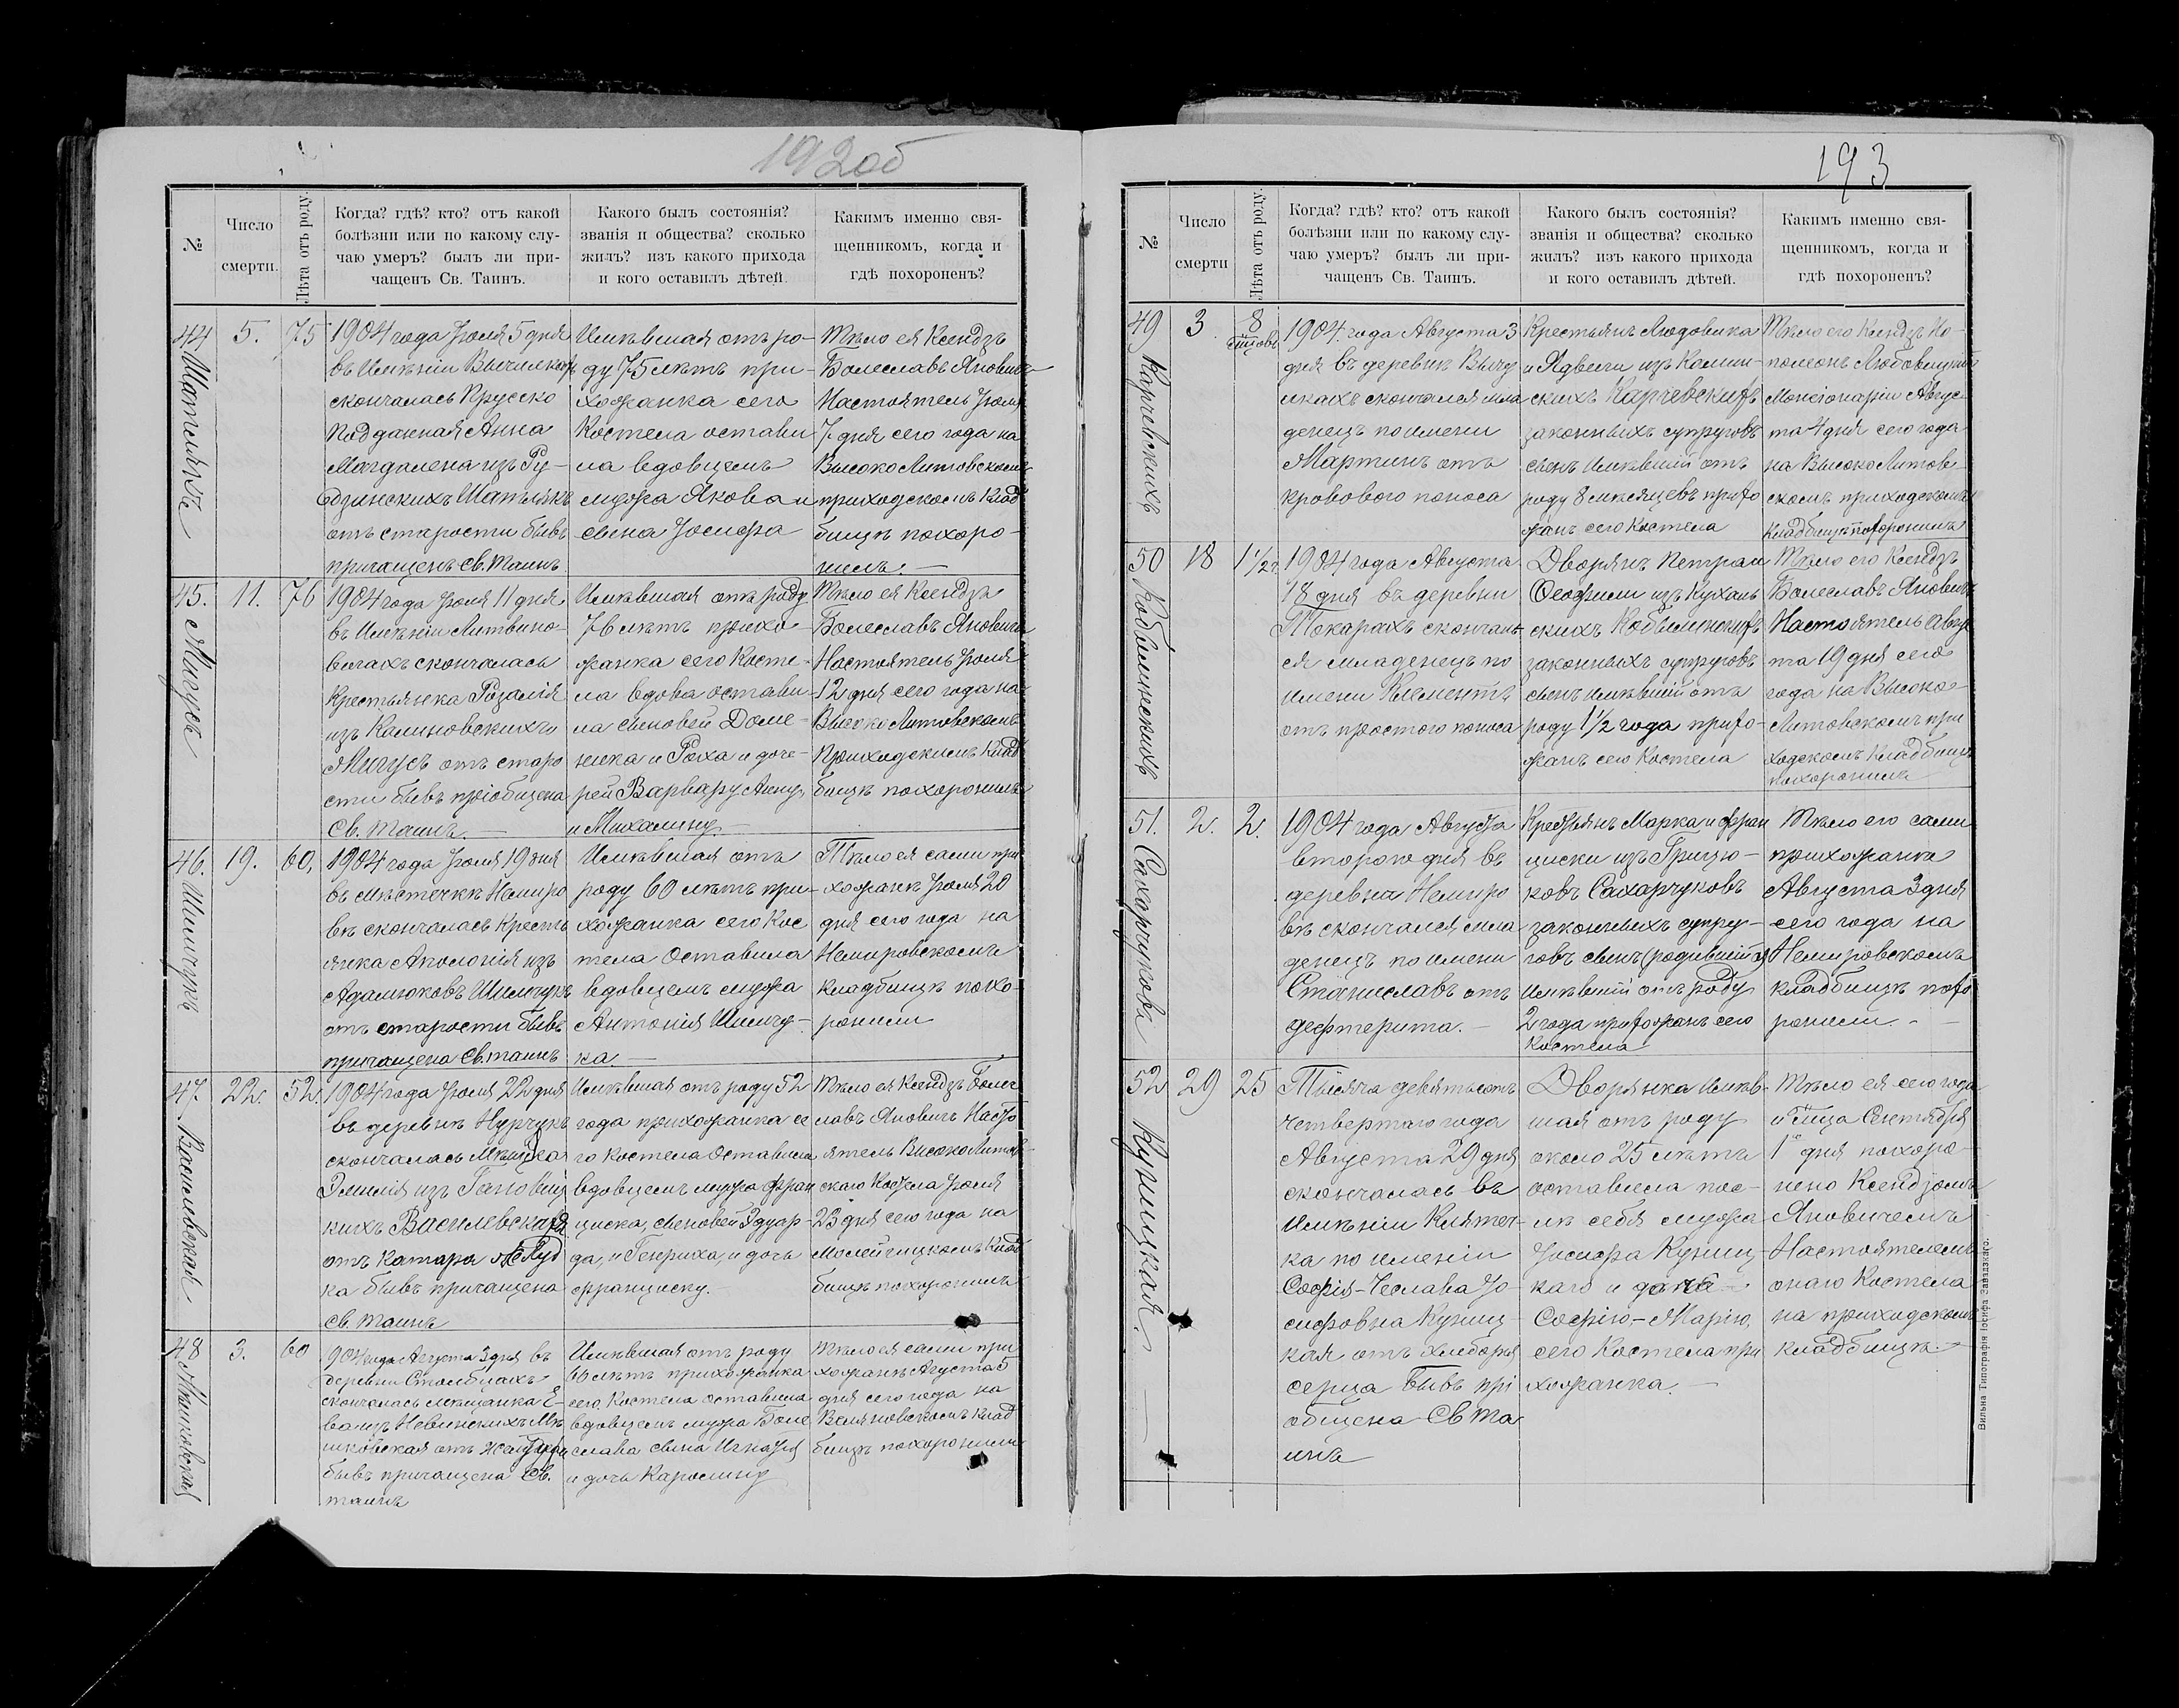 192об
№
Число смерти.
Лѣта отъ роду.
Когда? гдѣ? кто? отъ какой
болѣзни или по какому слу-
чаю умеръ? былъ ли при-
чащенъ Св. Таинъ.
Какого былъ состоянія?
званія и общества? сколько
жилъ? изъ какого прихода
и кого оставилъ дѣтей.
Какимъ именно свя-
щенникомъ, когда и
гдѣ похороненъ?
44
5.
75
1904 года Іюля 5 дня
въ Имѣніи
скончалась Прусско
Подданная Анна
Магдалена изъ Ру-
дзинскихъ
отъ старости бывъ
причащенъ Св. Таинъ.
Имѣвшая отъ ро-
ду 75 лѣтъ при-
хожанка сего
Костела остави
ла вдовцемъ
мужа Якова и
сына Іосифа
Тѣло ея Ксендзъ
Болеславъ Яновичъ
Настоятель Іюля
7 дня сего года на
Высоко Литовскомъ
приходскомъ Клад
бищѣ похоро-
нилъ.—
45.
Мигусъ
11.
76
1904 года Іюля 11 дня
въ Имѣніи Литвино-
вичахъ скончалась
Крестьянка Розалія
изъ Калиновскихъ
Мигусъ отъ старо
сти бывъ пріобщена
Св. Таинъ.—
Имѣвшая отъ роду
76 лѣтъ прихо-
жанка сего Косте-
ла вдова остави-
ла сыновей Доме-
ника и Роха и доче-
рей Варвару Анну,
и Михалину.
Тѣло ея Ксендзъ
Болеславъ Яновичъ
Настоятель Іюля
12 дня сего года на
Высоко Литовскомъ
Приходскомъ Клад
бищѣ похоронилъ
46.
Шимчукъ
19.
60,
1904 года Іюля 19 дня
въ мѣстечкѣ Немиро
вѣ скончалась Кресть
янка Аполонія изъ
Адамюковъ Шимчукъ
отъ старости бывъ
причащена Св. таинъ
Имѣвшая отъ
роду 60 лѣтъ при-
хожанка сего Кос
тела Оставила
вдовцемъ мужа
Антонія Шимчу-
ка.—
Тѣло ея сами при
хожане Іюля 20
дня сего года на
Немировскомъ
Кладбищѣ похо-
ронили
47
Василевская
22.
52.
1904 года Іюля 22 дня
въ деревнѣ Нурчукъ
скончалась Мѣщанка
Эмилія изъ
кихъ Василевская
отъ катара желуд
ка бывъ причащена
Св. Таинъ
Имѣвшая отъ роду 52
года прихожанка се
го Костела Оставила
вдовцемъ мужа Фран
циска, сыновей Эдуар-
да, и Генриха, и дочь
Франциску.—
Тѣло ея Ксендзъ Болес
лавъ Яновичъ Насто
ятель Високо Литов-
скаго Костела Іюля
23 дня сего года на
Молейчицкомъ Клад
бищѣ похоронилъ
48
3.
60
904 года Августа 3 дня въ
деревни Столбцахъ
скончалась мѣщанка Е-
ва изъ Невинскихъ
бывъ причащена Св.
таинъ
Имѣвшая отъ роду
60 лѣтъ прихожанка
сего Костела оставила
вдовцемъ мужа Боле
слава сына Игнатія
и дочь Каролину
Тѣло ея сами при
хожане Августа 5
дня сего года на
Веляновскомъ Клад
бищѣ похоронили
193
№
Число смерти
Лѣта отъ роду.
Когда? гдѣ? кто? отъ какой
болѣзни или по какому слу-
чаю умеръ? былъ ли при-
чащенъ Св. Таинъ.
Какого былъ состоянія?
званія и общества? сколько
жилъ? изъ какого прихода
и кого оставилъ дѣтей.
Какимъ именно свя-
щенникомъ, когда и
гдѣ похороненъ?
49
Карчевскихъ
3
8
1904. года Августа 3
дня въ деревнѣ Вычу
лкахъ скончался мла
денецъ по имени
Мартинъ отъ
кровового поноса
Крестьянъ Людовика
и Ядвиги изъ Калин-
скихъ Карчевскихъ
законныхъ супруговъ
сынъ имѣвшій отъ
роду 8 мѣсяцевъ прихо
жанъ сего Костела
Тѣло его Ксендзъ На-
полеонъ
Мансіонарій Авгус-
та 4 дня сего года
на Высоко Литов-
скомъ приходскомъ
Кладбищѣ похоронилъ
50
Кобылинскихъ
18
1 1/2 г.
1904 года Августа
18 дня въ деревни
Токарахъ скончал-
ся младенецъ по
имени Климентъ
отъ простого поноса
Дворянъ Петра и
Феофили изъ Кухаль
скихъ Кобылинскихъ
законныхъ супруговъ
сынъ имѣвшій отъ
роду 1 1/2 года прихо-
жанъ сего Костела
Тѣло его Ксендзъ
Болеславъ Яновичъ
Настоятель Авгус
та 19 дня сего
года на Высоко-
Литовскомъ при
ходскомъ Кладбищѣ
похоронилъ
51.
Сахарчукова
2.
2.
1904 года Августа
второго дня въ
деревни Немиро
вѣ скончался мла
денецъ по имени
Станиславъ отъ
дефтерита.—
Крестьянъ Марка и Фран
циски изъ Грицю-
ковъ Сахарчуковъ
законныхъ супру-
говъ сынъ
имѣвшій отъ роду
2 года прихожанъ сего
Костела
Тѣло его сами
прихожане
Августа 3 дня
сего года на
Немировскомъ
кладбищѣ похо
ронили.—
52
Куницкая.
29
25
Тысяча девятьсотъ
четвертаго года
Августа 29 дня
скончалась въ
Имѣніи Клятеч-
ка по имени
Софія-Чеслава Іо-
сифовна Куниц-
кая отъ хвороб
серца Бывъ прі
общена Св Та
инъ
Дворянка имѣв-
шая отъ роду
около 25 лѣтъ
оставила пос-
лѣ себя мужа
Іосифа Куниц-
каго и дочь
Софію-Марію,
сего Костела при
хожанка.—
Тѣло ея сего года
и м-ца Сентября
1го дня похоро-
нено Ксендзомъ
Яновичемъ
Настоятелемъ
онаго Костела
на приходскомъ
кладбищѣ.—
Вильна Типографія Іосифа Завадзкаго.